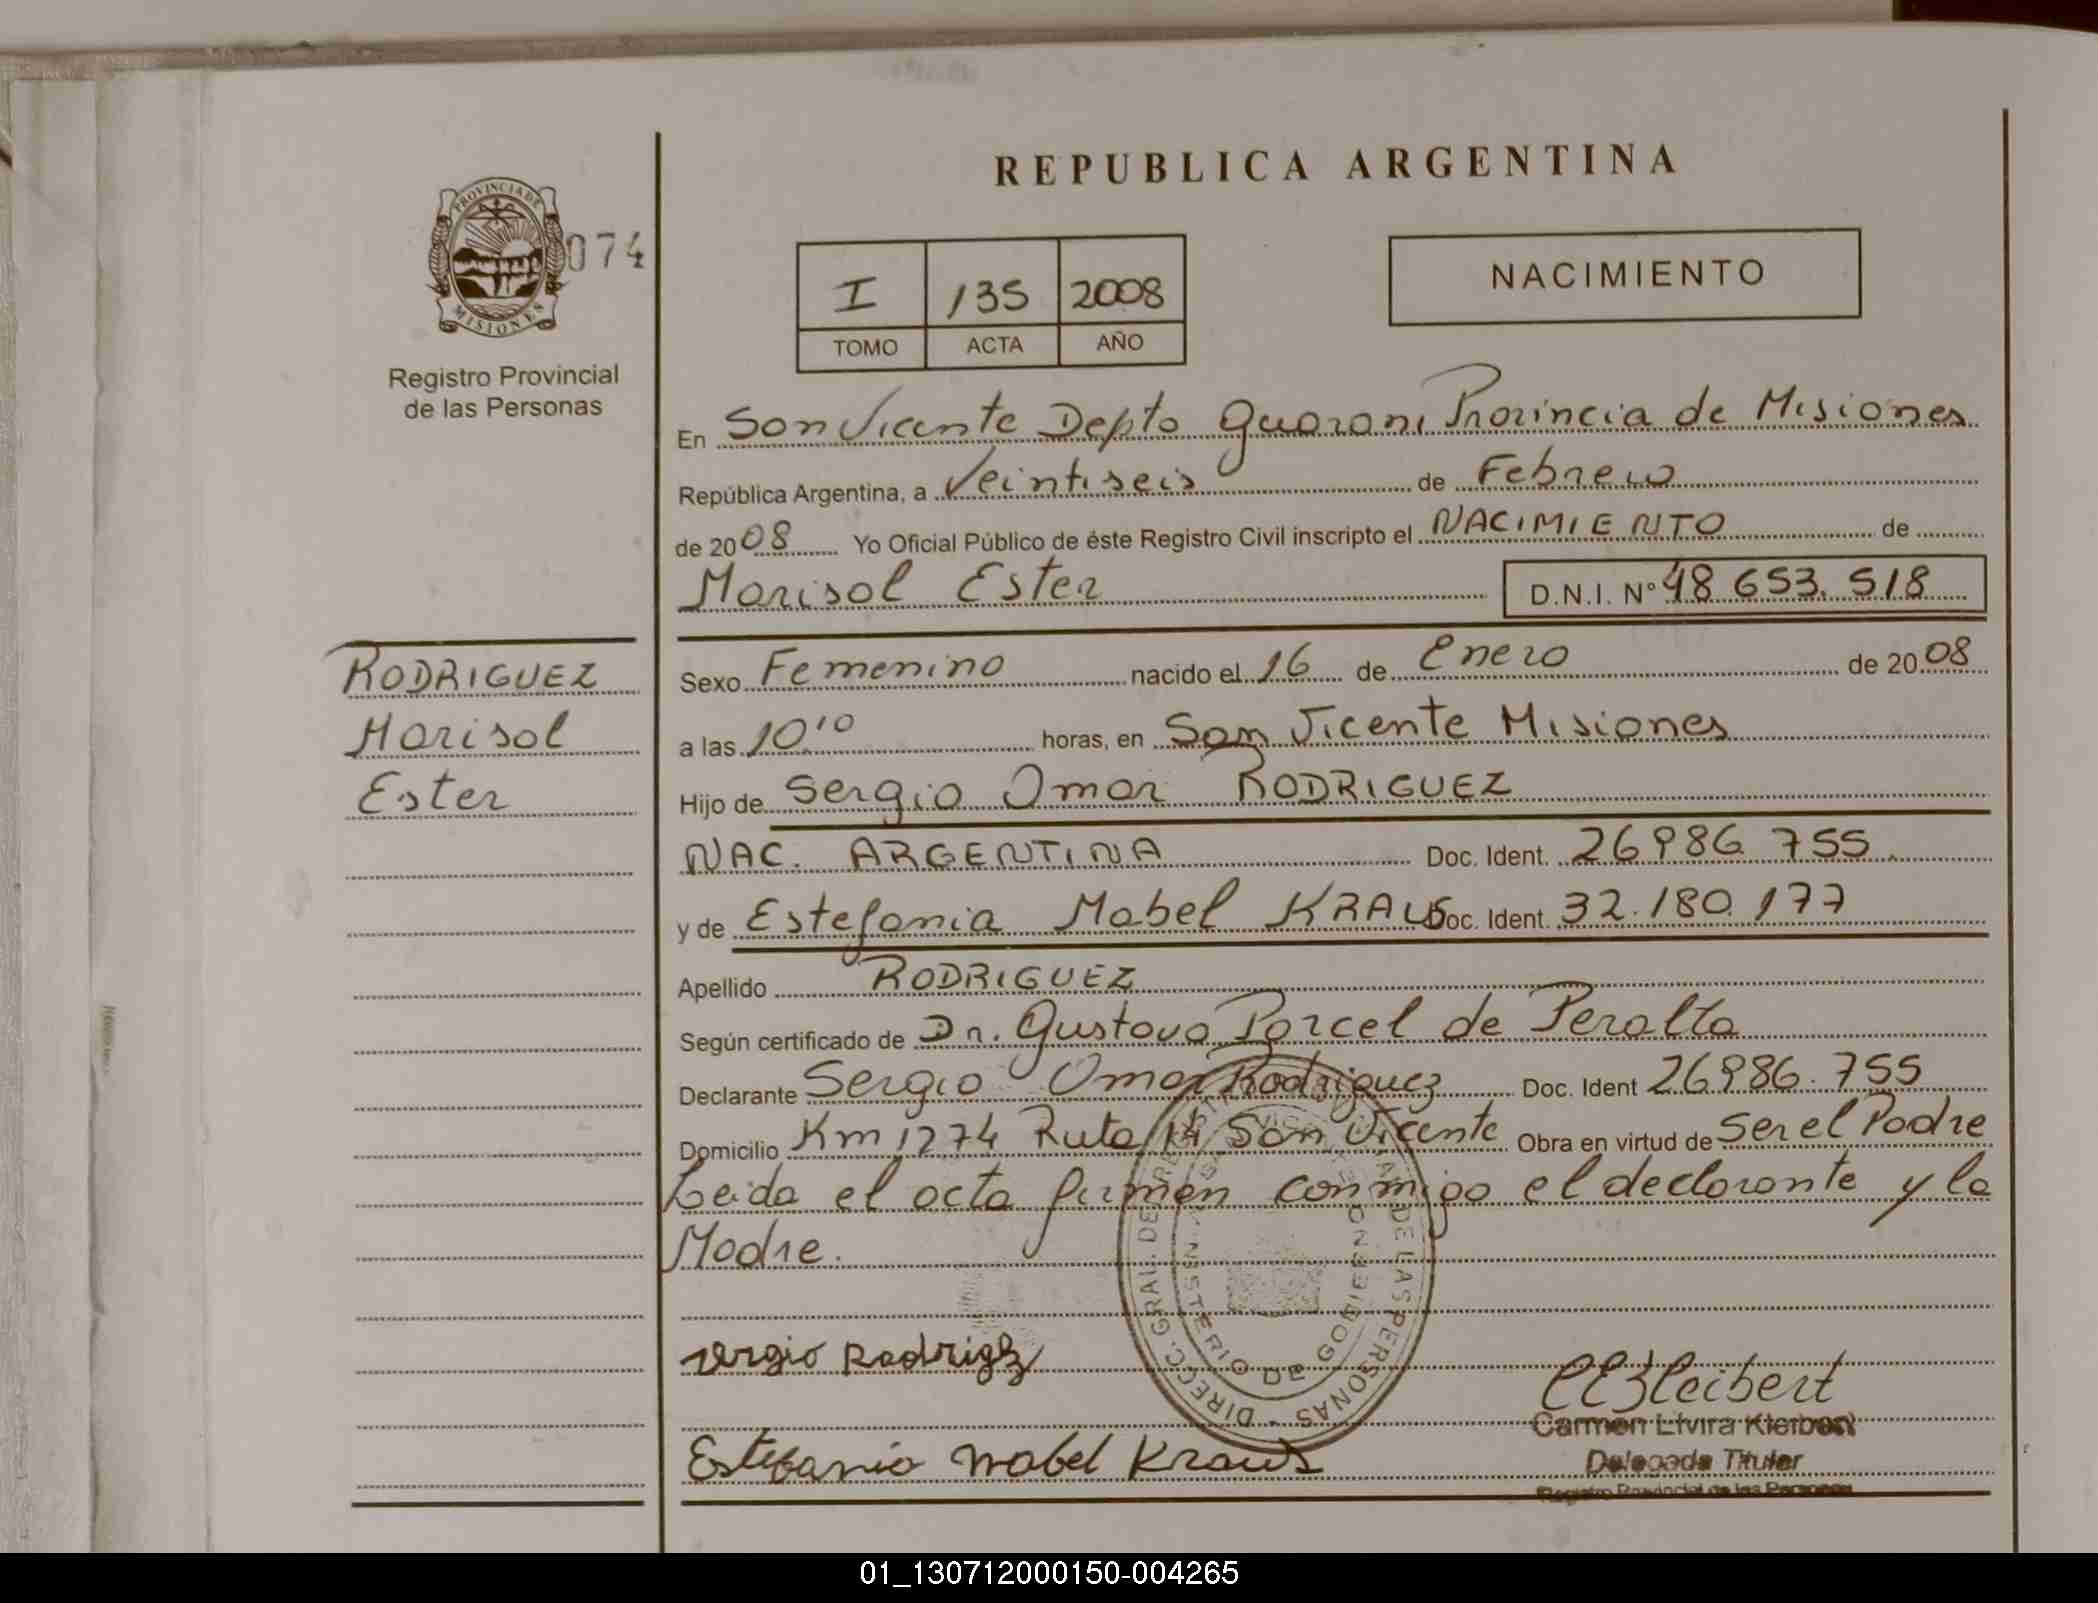 REPUBLICA ARGENTINA
PROVINCIA DE
MISIONES
074
Registro Provincial
de las Personas
I 135 2008
TOMO ACTA AÑO
NACIMIENTO
En San Vicente Depto Guarani Provincia de Misiones
República Argentina, a Veintiseis de Febrero
de 2008 Yo Oficial Público de éste Registro Civil inscripto el NACIMIENTO de
Marisol Ester D.N.I. Nº 48 653.518
RODRIGUEZ
Marisol
Ester
Sexo Femenino nacido el 16 de Enero de 2008
a las 10'10 horas, en San Vicente Misiones
Hijo de Sergio Omar RODRIGUEZ
NAC. ARGENTINA Doc. Ident. 26986.755
y de Estefania Mabel KRAUS Doc. Ident. 32.180.177
Apellido RODRIGUEZ
Según certificado de Dr. Gustavo Porcel de Peralta
Declarante Sergio Omar Rodriguez Doc. Ident 26986.755
Domicilio Km 1274 Ruta 14 San Vicente Obra en virtud de Ser el Padre
Leida el acta firman conmigo el declarante y la
Madre.
DIREC. GRAL. DE DE LAS PERSONAS
MINISTERIO DE GOBIERNO
Sergio Rodrigz
Estefania Mabel Kraus
Carmen Elvira Kleibert
Delegada Titular
Registro Provincial de las Personas
01_130712000150-004265